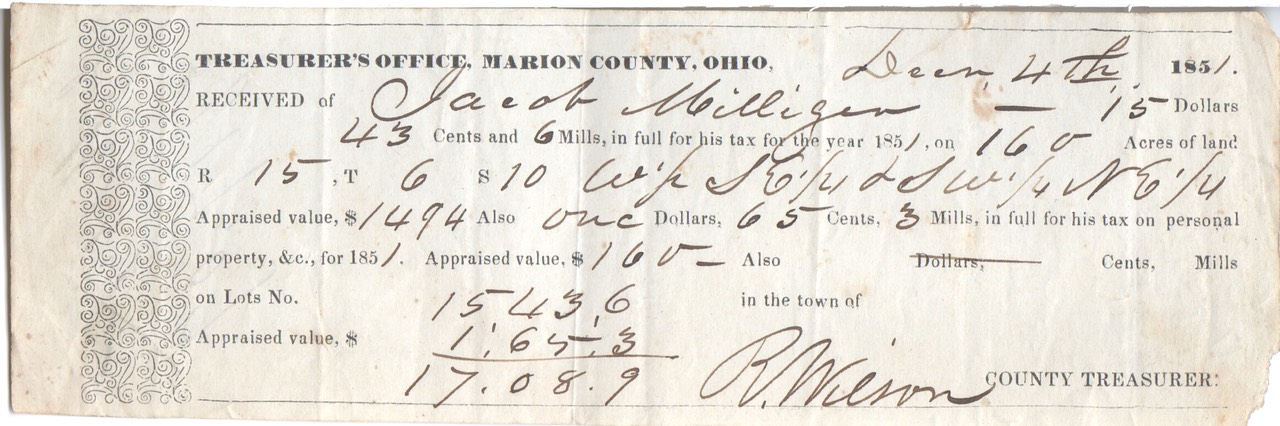 TREASURER'S OFFICE, MARION COUNTY, OHIO, Decr, 4th, 1851.
RECEIVED of Jacob Milligen — 15 Dollars
43 Cents and 6 Mills, in full for his tax for the year 1851, on 160 Acres of land
R 15, T 6 S 10 W 1/2 S E 1/4 & S W 1/4 N E 1/4
Appraised value, $1494 Also one Dollars, 65 Cents, 3 Mills, in full for his tax on personal
property, &c., for 1851. Appraised value, $160— Also Dollars, Cents, Mills
on Lots No. 15,43,6 in the town of
Appraised value, $ 1,65.3
17.08.9 R. Wilson COUNTY TREASURER.